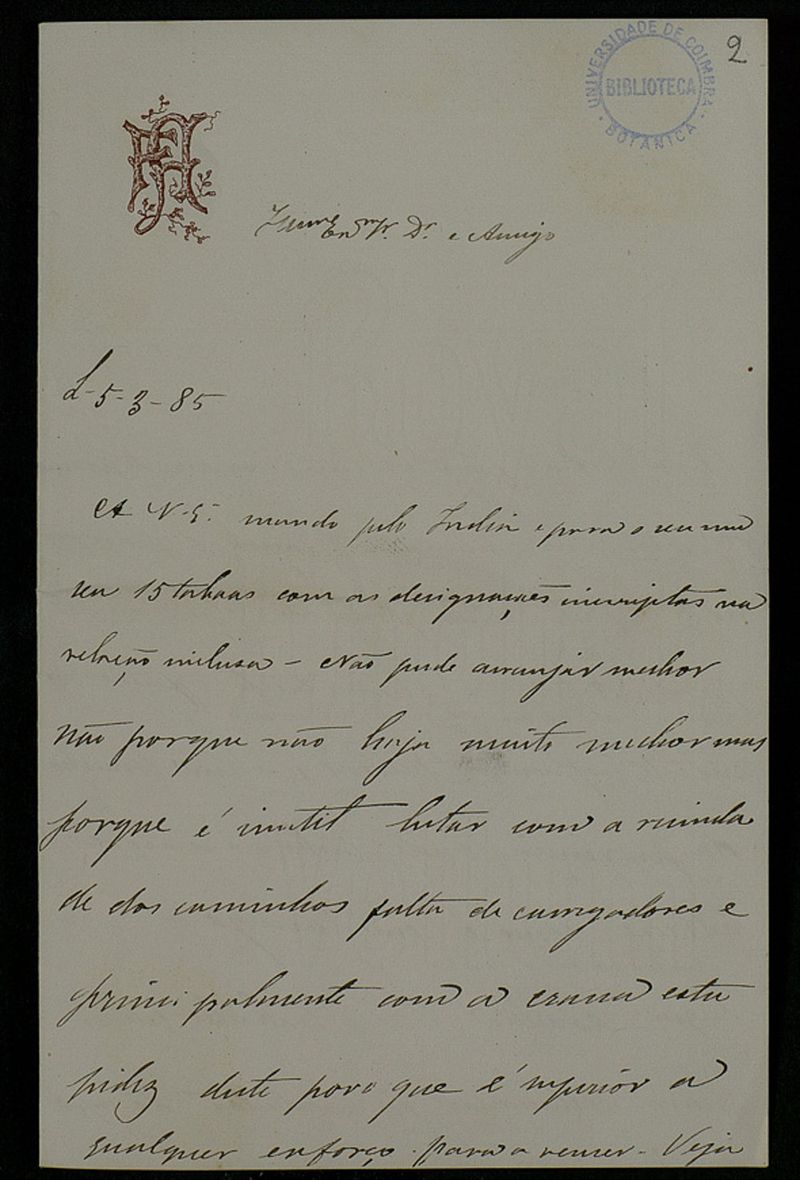 2
UNIVERSIDADE DE COIMBRA
BIBLIOTECA
BOTANICA
FA
Illmo Exmo Sr. Dr. e Amigo
L-5-3-85
A V. Ex. mando pelo India e para o seu mu
seu 15 tabuas com as designações inscriptas na
relação inclusa - Não pude arranjar melhor
não porque não haja muito melhor mas
porque é inutil lutar com a ruinda
de dos caminhos falta de carregadores e
principalmente com a crassa estu
pidez deste povo que é superior a
qualquer esforço para a vencer - Veja